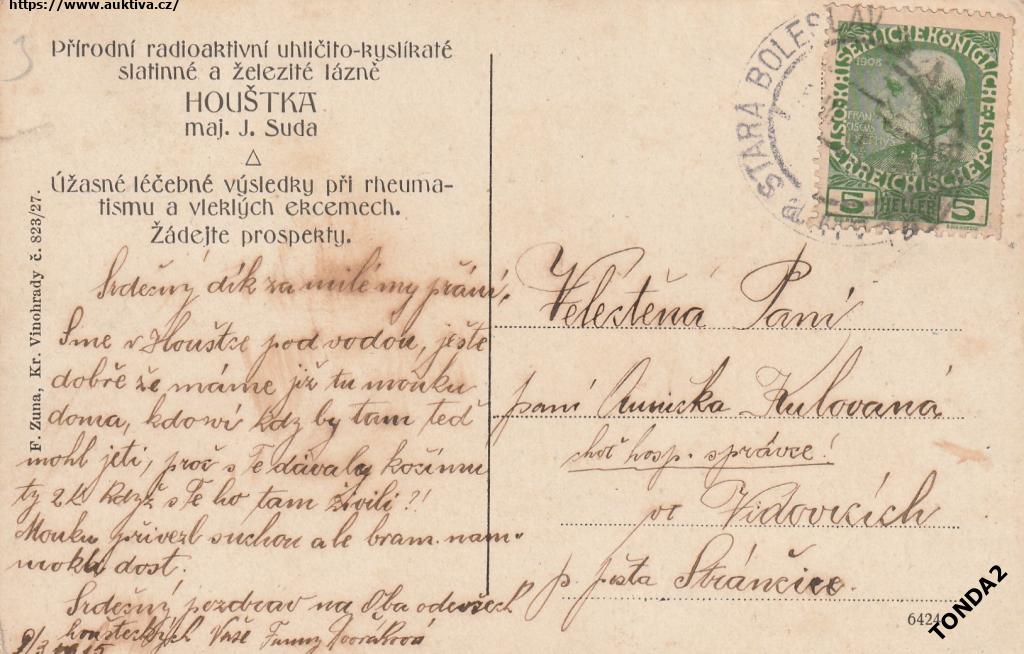 https://www.auktiva.cz/
3
Přírodní radioaktivní uhličito-kyslíkaté
slatinné a železité lázně
HOUŠTKA
maj. J. Suda
Úžasné léčebné výsledky při rheuma-
tismu a vleklých ekcemech.
Žádejte prospekty.
F. Zuna, Kr. Vinohrady č. 823/27.
STARA BOLESLAV
KAISERLICHE KÖNIGLICHE
ÖSTERREICHISCHE POST
1908
5 HELLER 5
Srdečný dík za milé my přání,
Sme v Houštce pod vodou, ještě
dobře že máme již tu mouku
doma, kdoví kdz by tam teď
mohl jeti, proč s Te dávaly
ty 2K když s Te ho tam živili?!
Mouku přivezl suchou ale bram. nam-
mokla dost.
Srdečný pozdrav na Oba ode všech
housteckých Vaše Fanny Dvořáková
9/3 1915
Velectěná Paní
paní Kulovaná
choť hosp. správce!
ve Vidovicích
p. pošta Stránčice.
6424
TONDA2